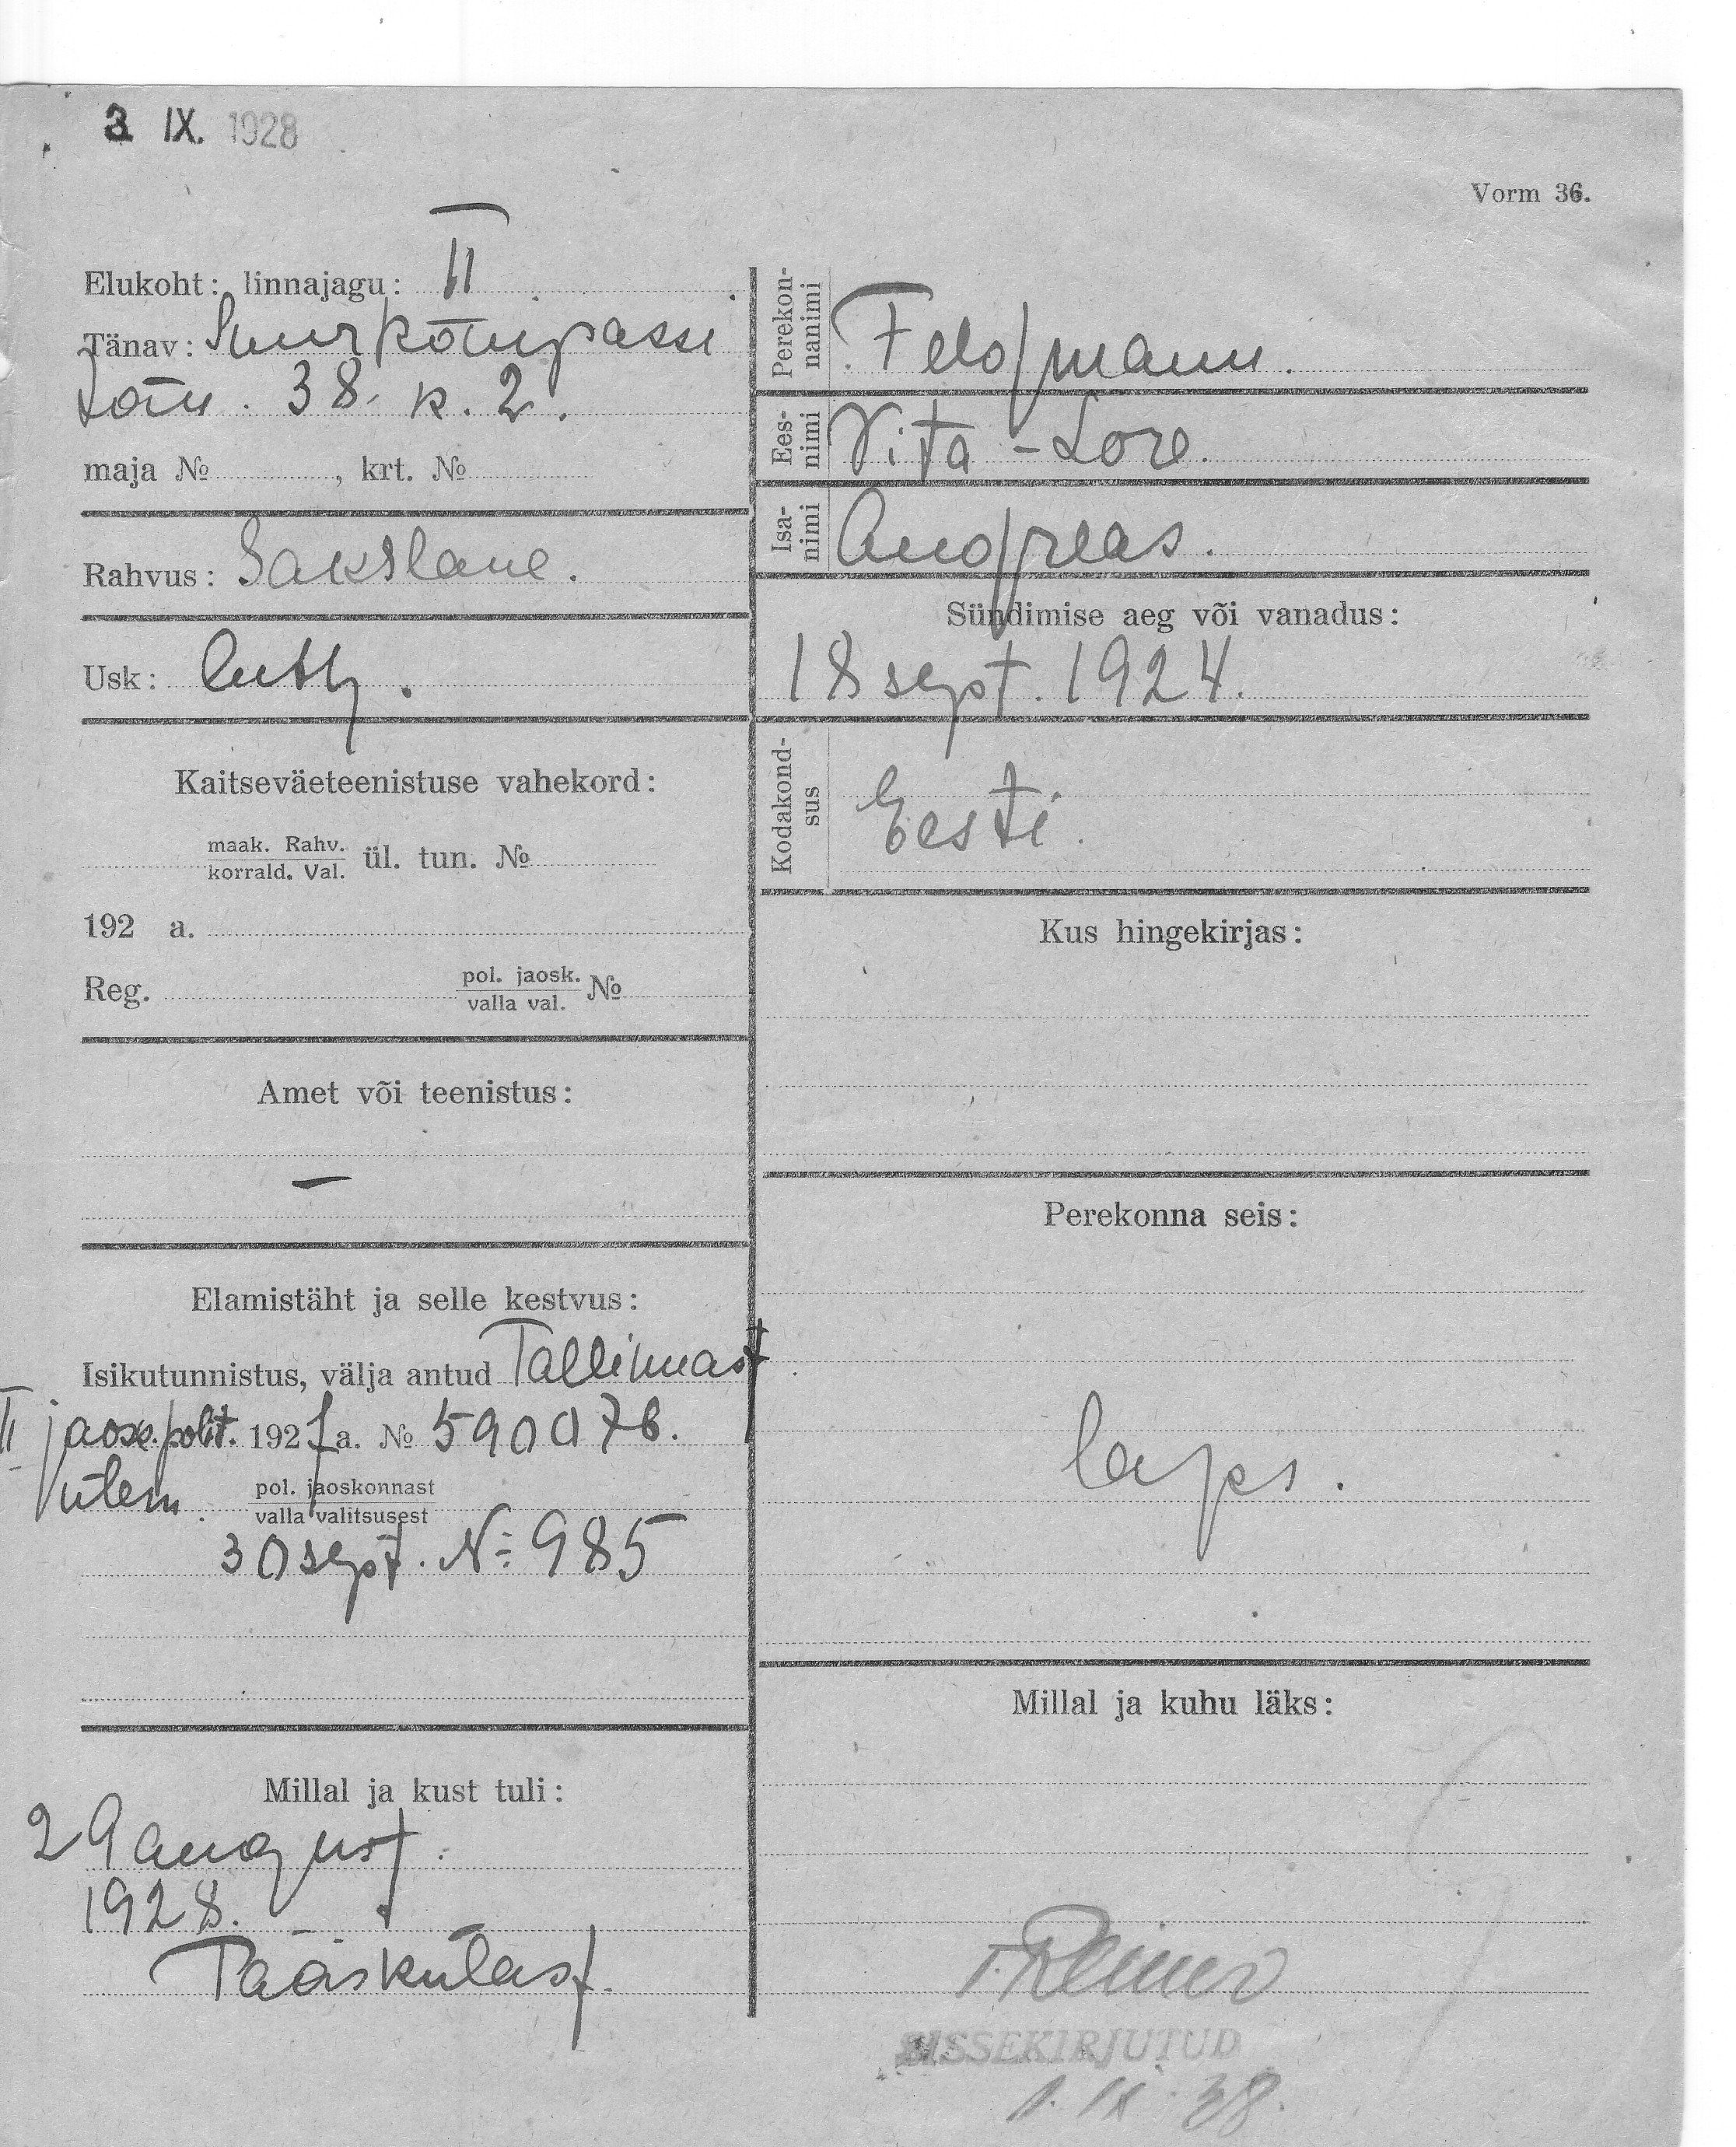 3 IX. 1928
Vorm 36.
Elukoht: linnajagu: II
Tänav: Suurkompassi
tän. 38. k. 2.
maja № , krt. №
Rahvus: Sakslane.
Usk: luth.
Kaitseväeteenistuse vahekord:
maak. Rahv.
korrald. Val. ül. tun. №
192 a.
Reg. pol. jaosk.
valla val. №
Amet või teenistus:
—
Elamistäht ja selle kestvus:
Isikutunnistus, välja antud Tallinnast
II jaosk. polit. 192 a. № 590076.
ülem. pol. jaoskonnast
valla valitsusest
30 sept. №: 985
Millal ja kust tuli:
29 august.
1928.
Pääskülast.
Perekon-
nanimi
Feldmann.
Ees-
nimi
Vita-Lore.
Isa-
nimi
Andreas.
Sündimise aeg või vanadus:
18 sept. 1924.
Kodakond-
sus
Eesti.
Kus hingekirjas:
Perekonna seis:
laps.
Millal ja kuhu läks:
SISSEKIRJUTUD